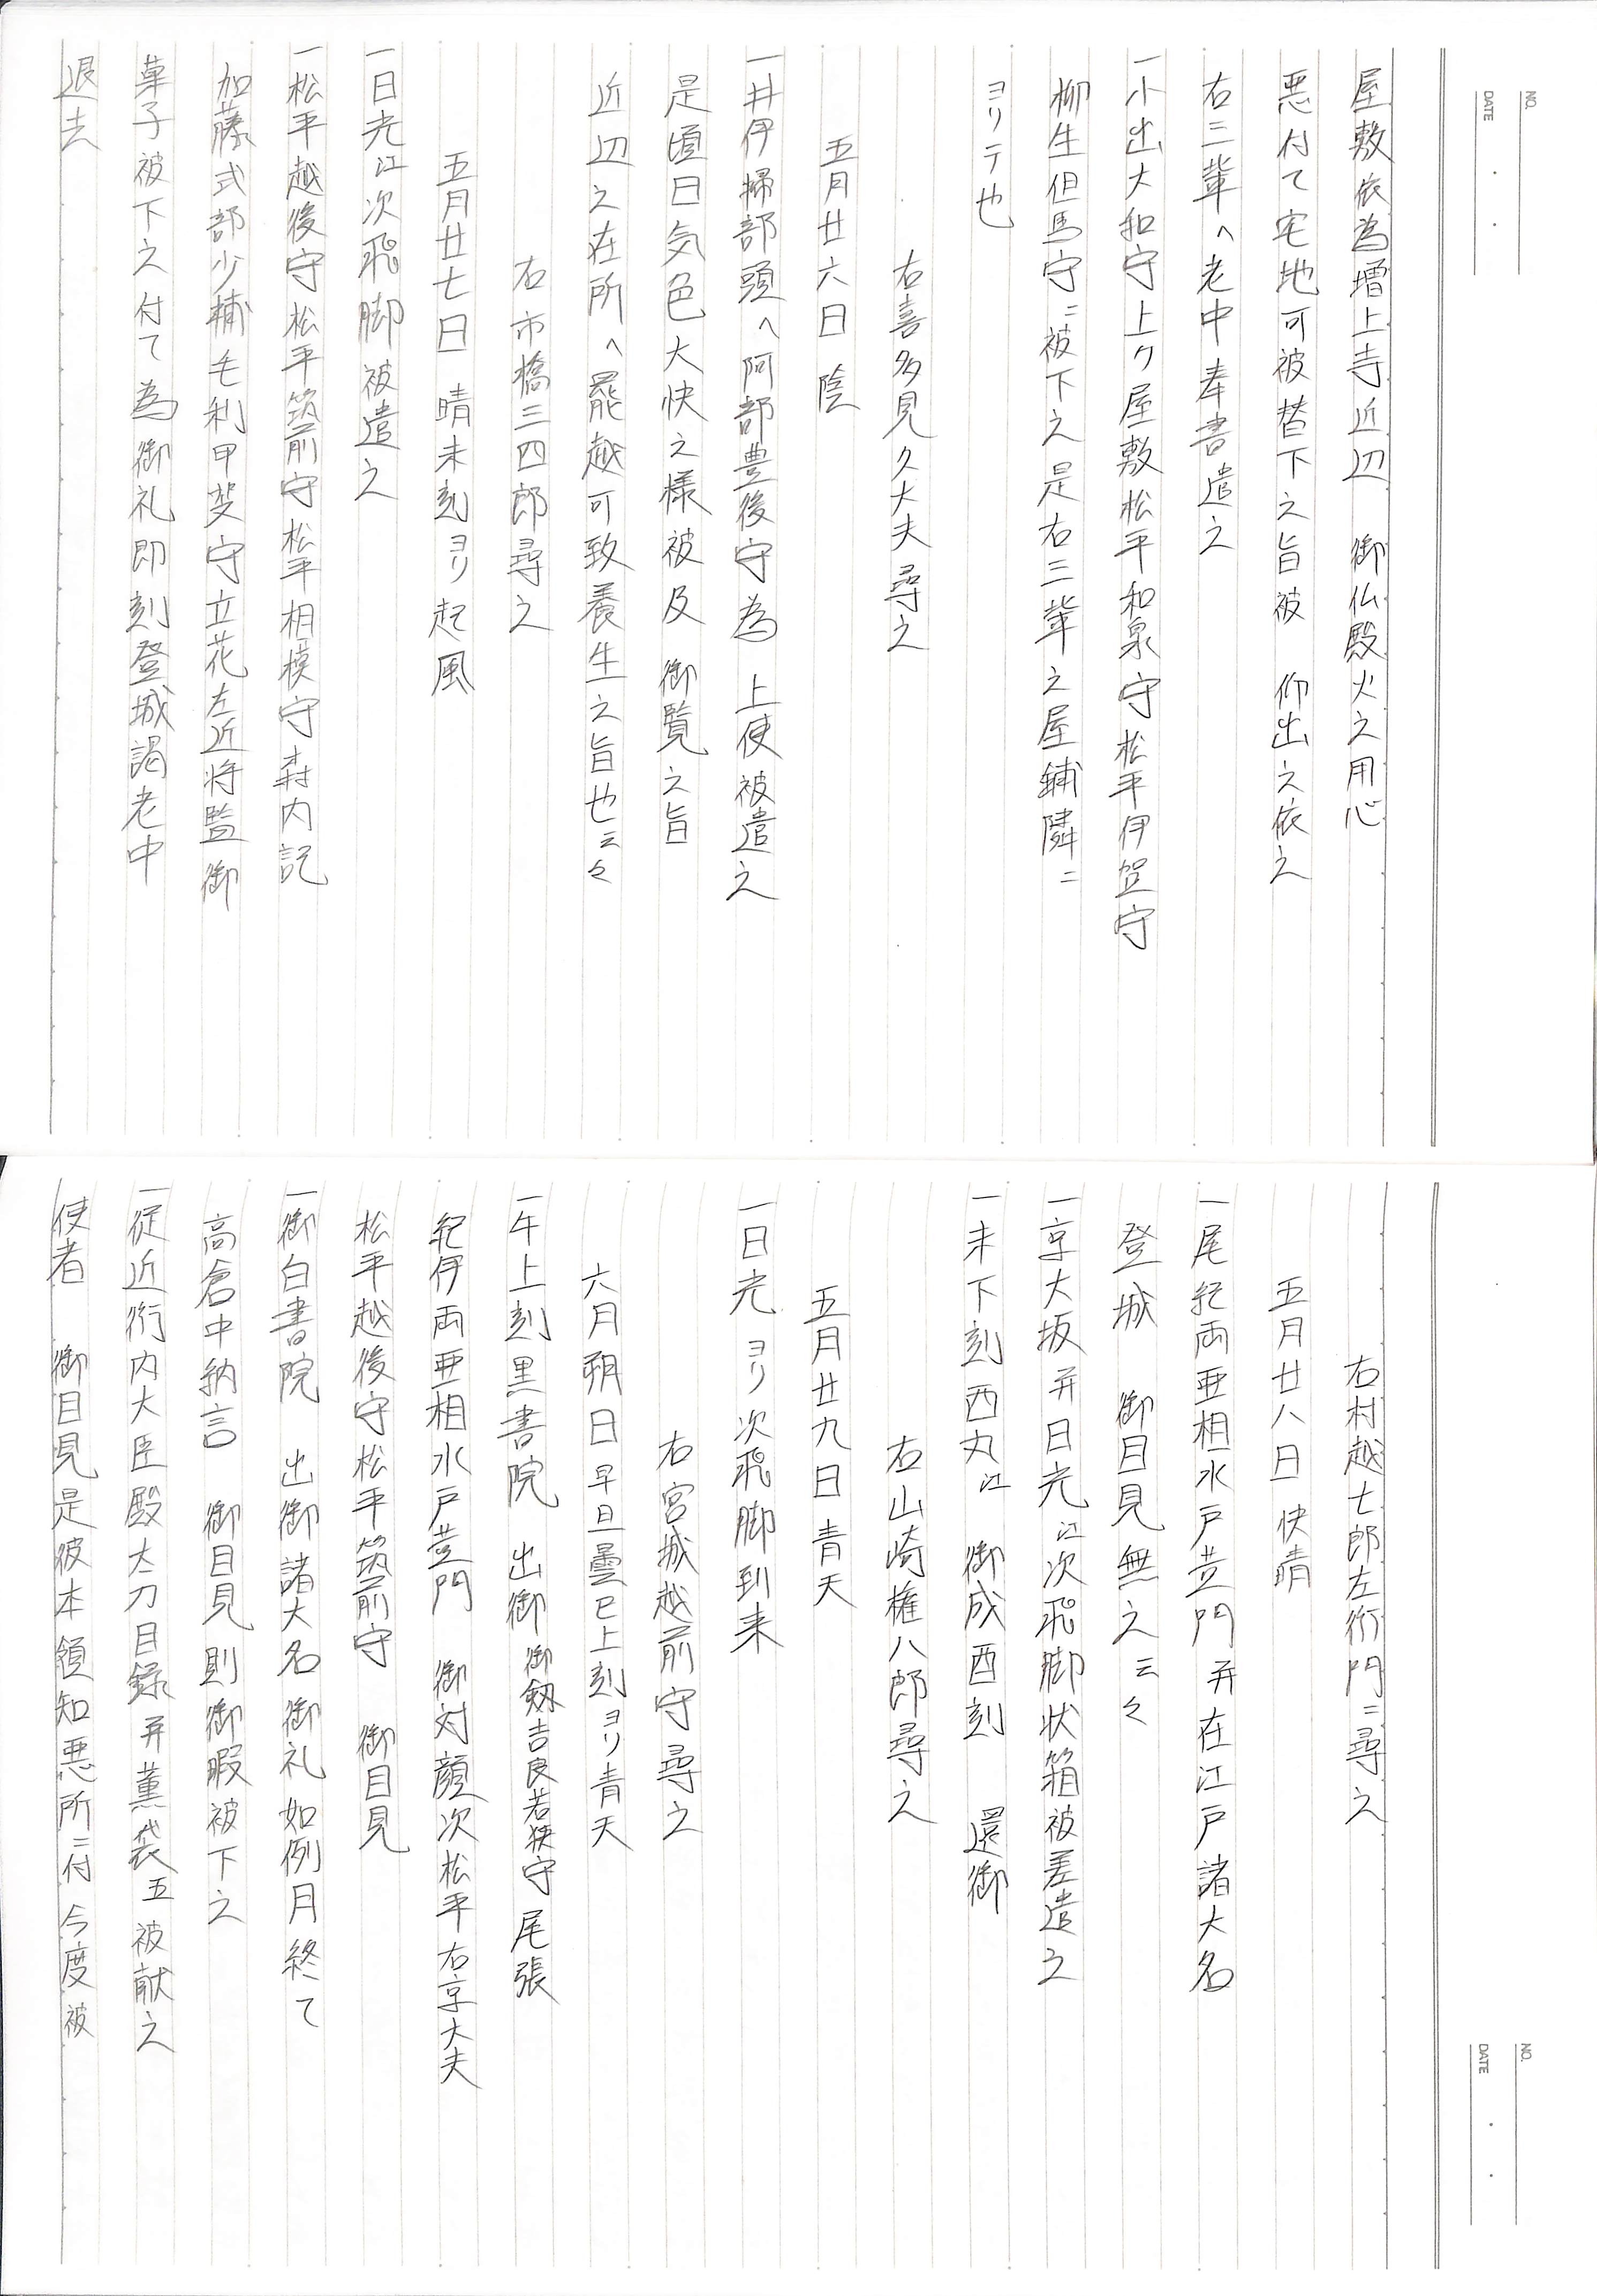 NO.
DATE
屋敷依為増上寺近辺　御仏殿火之用心
悪付て宅地可被替下之旨被　仰出之依之
右三輩へ老中奉書遣之
一小出大和守上ケ屋敷松平和泉守松平伊賀守
柳生但馬守ニ被下之是右三輩之屋鋪隣ニ
ヨリテ也
右喜多見久大夫尋之
五月廿六日　陰
一井伊掃部頭へ阿部豊後守為　上使被遣之
是頃日気色大快之様被及　御覧之旨
近辺之在所へ罷越可致養生之旨也云々
右市橋三四郎尋之
五月廿七日　晴未刻ヨリ起風
一日光江次飛脚被遣之
一松平越後守松平筑前守松平相模守森内記
加藤式部少輔毛利甲斐守立花左近将監御
菓子被下之付て為御礼即刻登城謁老中
退去
NO.
DATE
右村越七郎左衛門ニ尋之
五月廿八日　快晴
一尾紀両亜相水戸黄門并在江戸諸大名
登城　御目見無之云々
一京大坂并日光江次飛脚状箱被差遣之
一未下刻西丸江　御成酉刻　還御
右山崎権八郎尋之
五月廿九日　青天
一日光ヨリ次飛脚到来
右宮城越前守尋之
六月朔日　早旦曇巳上刻ヨリ青天
一午上刻黒書院　出御　御剱吉良若狭守　尾張
紀伊両亜相水戸黄門　御対顔次松平右京大夫
松平越後守松平筑前守　御目見
一御白書院　出御諸大名御礼如例月終て
高倉中納言　御目見則御暇被下之
一従近衛内大臣殿太刀目録并薫袋五被献之
使者　御目見是彼本領知悪所ニ付今度被